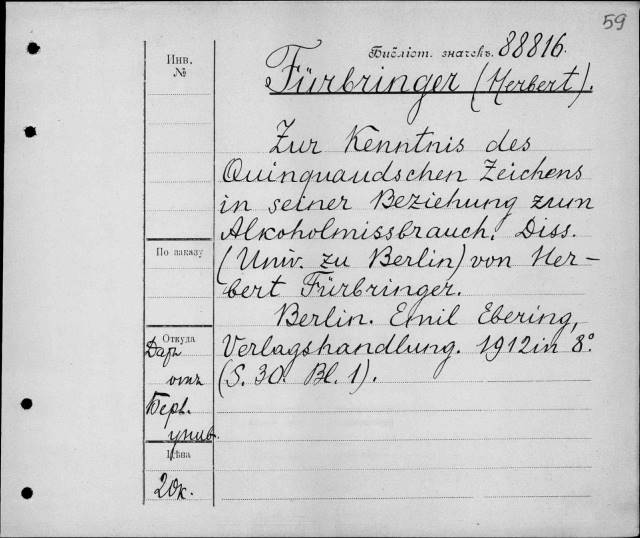 59
Библіот. значекъ. 88816.
Инв.
№
Fürbringer (Herbert).
Zur Kenntnis des
Quinquaudschen Zeichens
in seiner Beziehung zum
Alkoholmissbrauch. Diss.
(Univ. zu Berlin) von Her-
bert Fürbringer.
Berlin. Emil Ebering,
Verlagshandlung. 1912 in 8°.
(S. 30. Bl. 1).
По заказу
Откуда
Даръ
отъ
Берл.
унив.
Цѣна
20к.